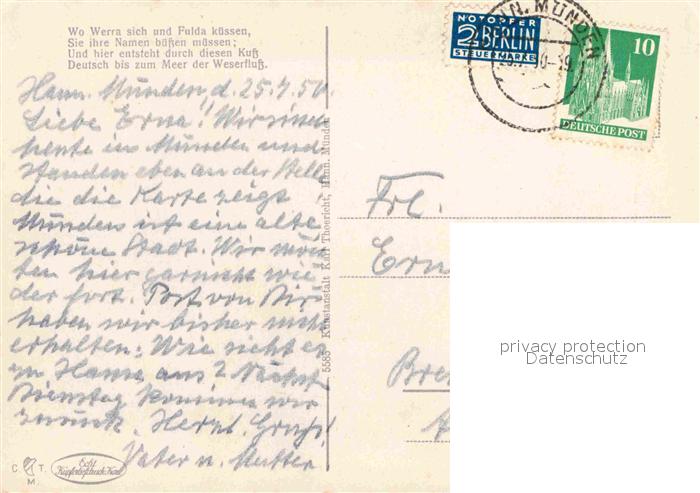 Wo Werra sich und Fulda küssen,
Sie ihre Namen büßen müssen;
Und hier entsteht durch diesen Kuß
Deutsch bis zum Meer der Weserfluß.
Hann. Münden, d. 25.7.50.
Liebe Erna! Wir sind
heute in Münden und
standen eben an der Stelle
die die Karte zeigt
Münden ist eine alte
schöne Stadt. Wir möch
ten hier garnicht wie
der fort. Post von Dir
haben wir bisher nicht
erhalten. Wie sieht es
zu Hause aus? Nächst.
Dienstag kommen wir
zurück. Herzl. Gruß!
Vater u. Mutter
C. T.
M.
Echt
Kupfertiefdruck-Karte
5585 Kunstanstalt Karl Thoericht, Hann. Münden
NOTOPFER
2 BERLIN
STEUERMARKE
HANN. MÜNDEN
10
DEUTSCHE POST
Frl.
Ern
Bre
privacy protection
Datenschutz